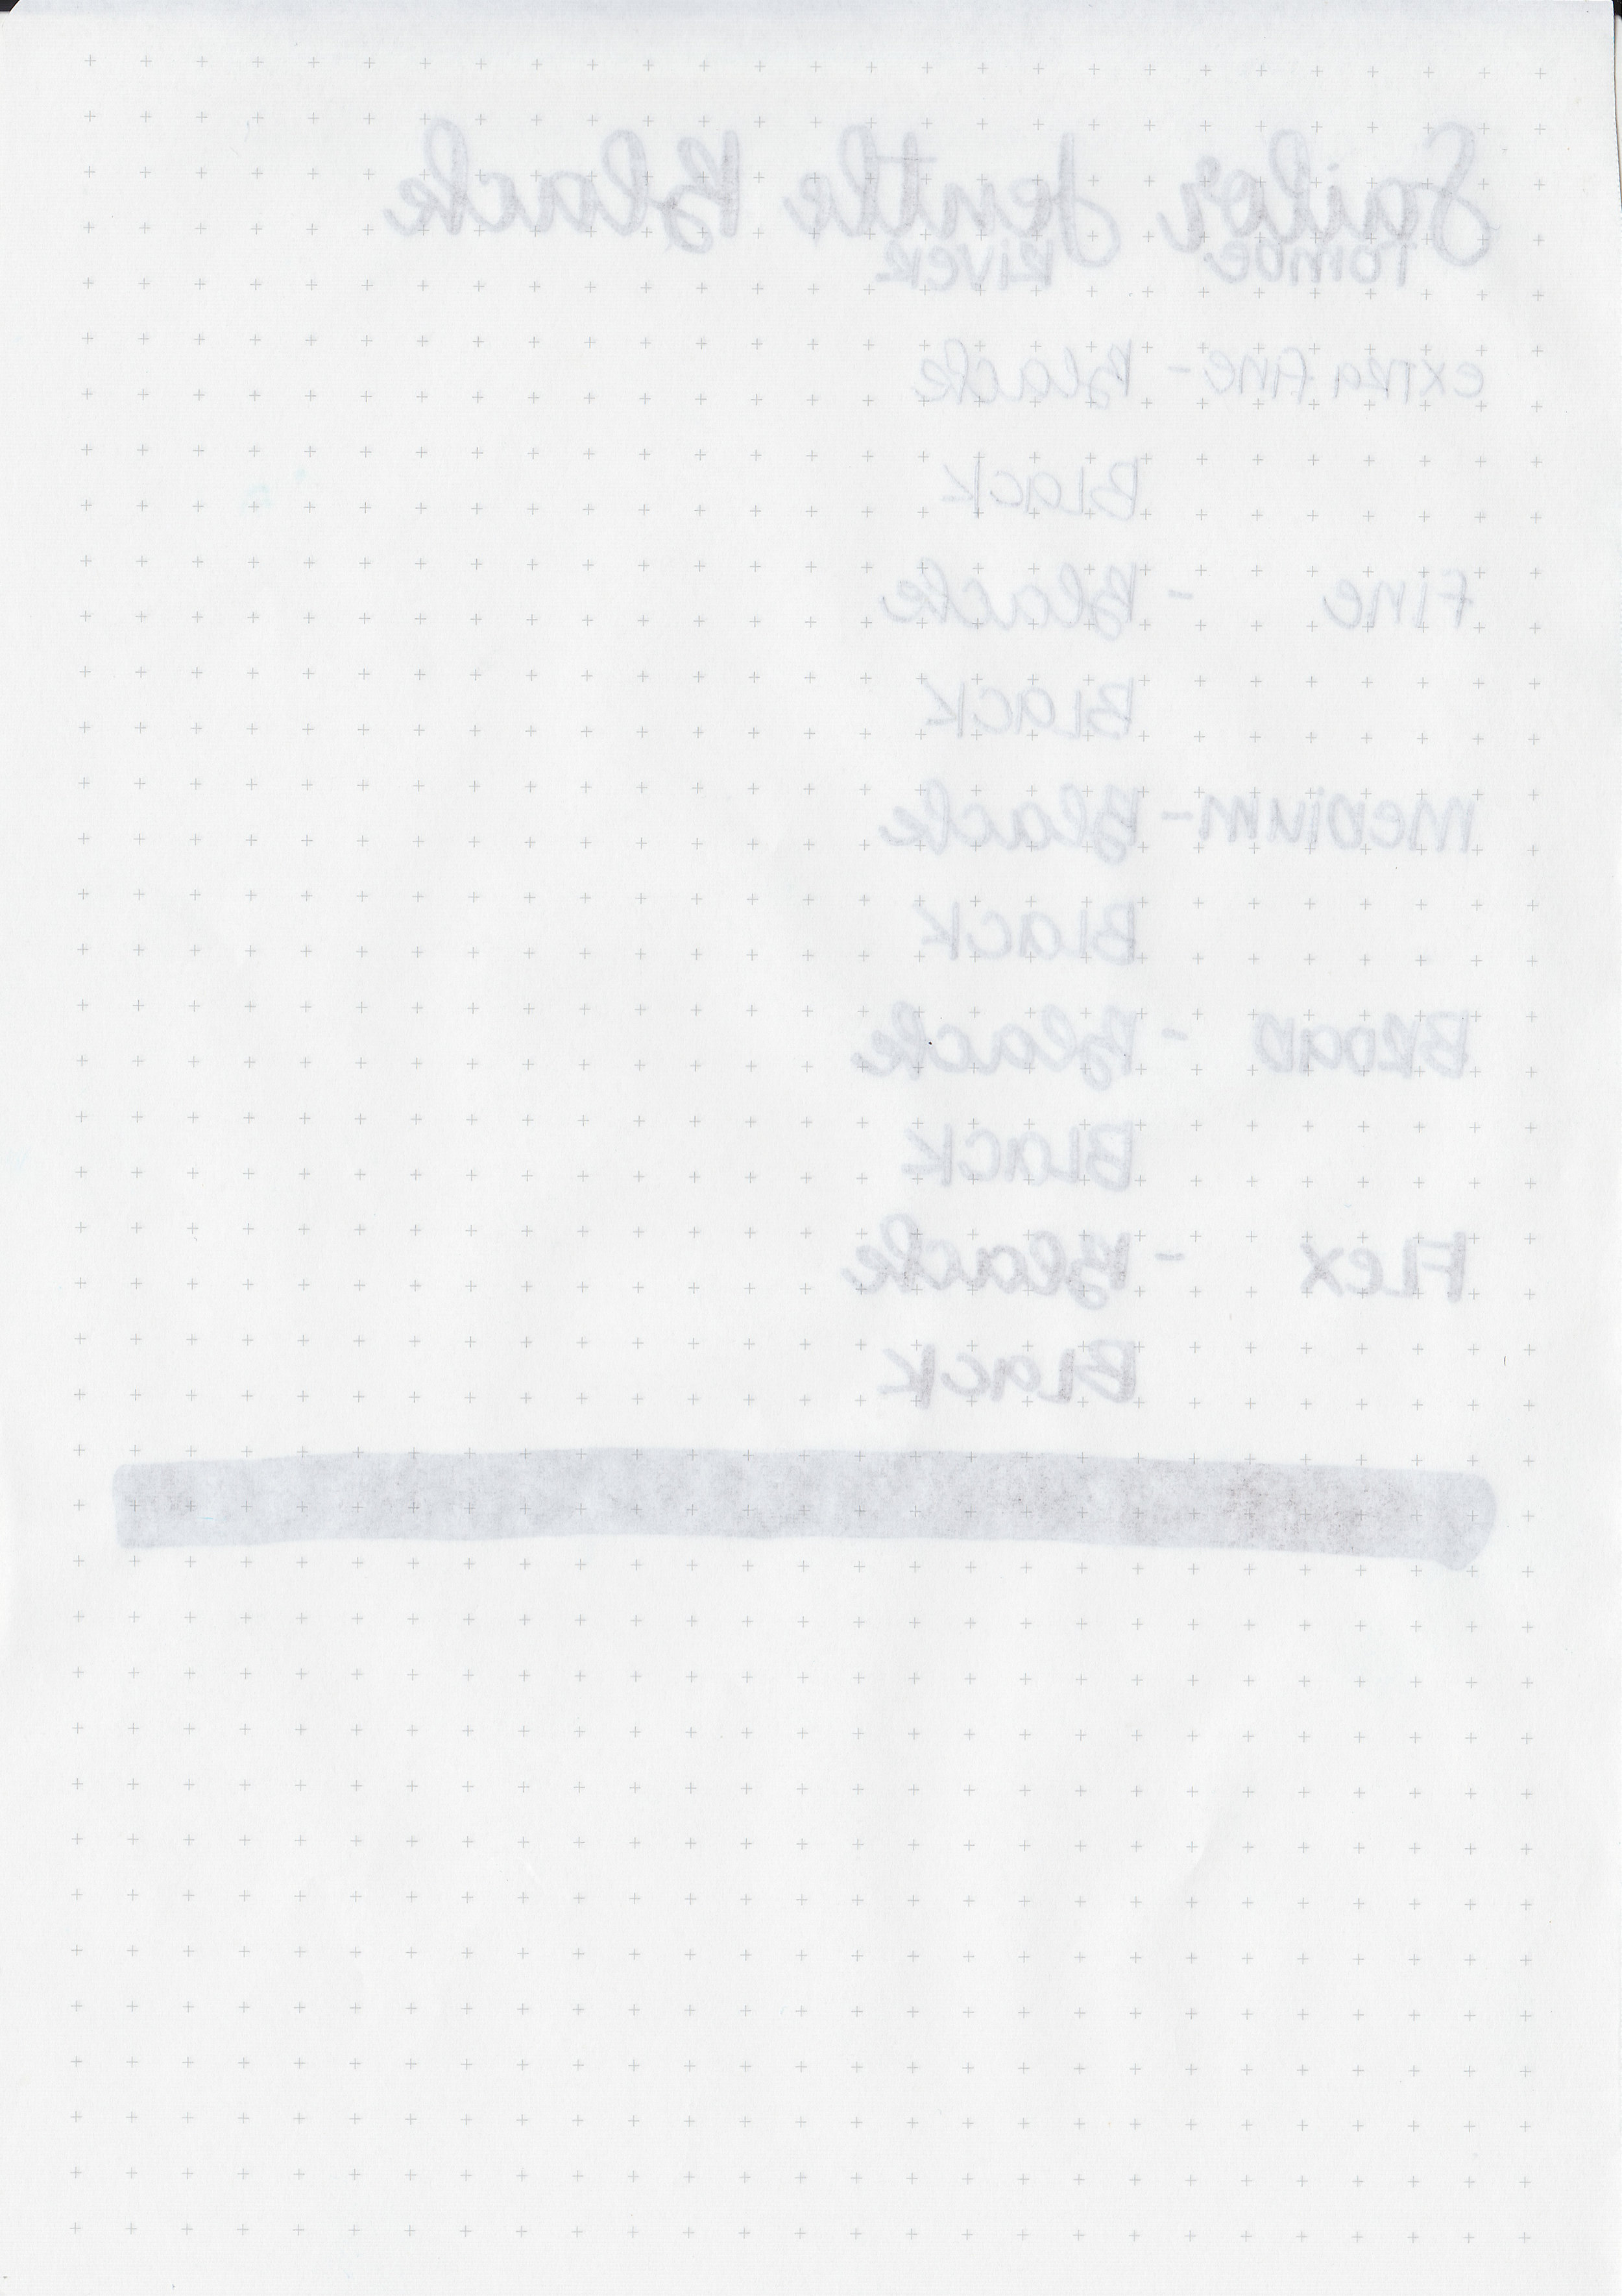 Sailor Jentle Black
Tomoe River
extra fine - Black
Black
Fine - Black
Black
Medium - Black
Black
Broad - Black
Black
Flex - Black
Black